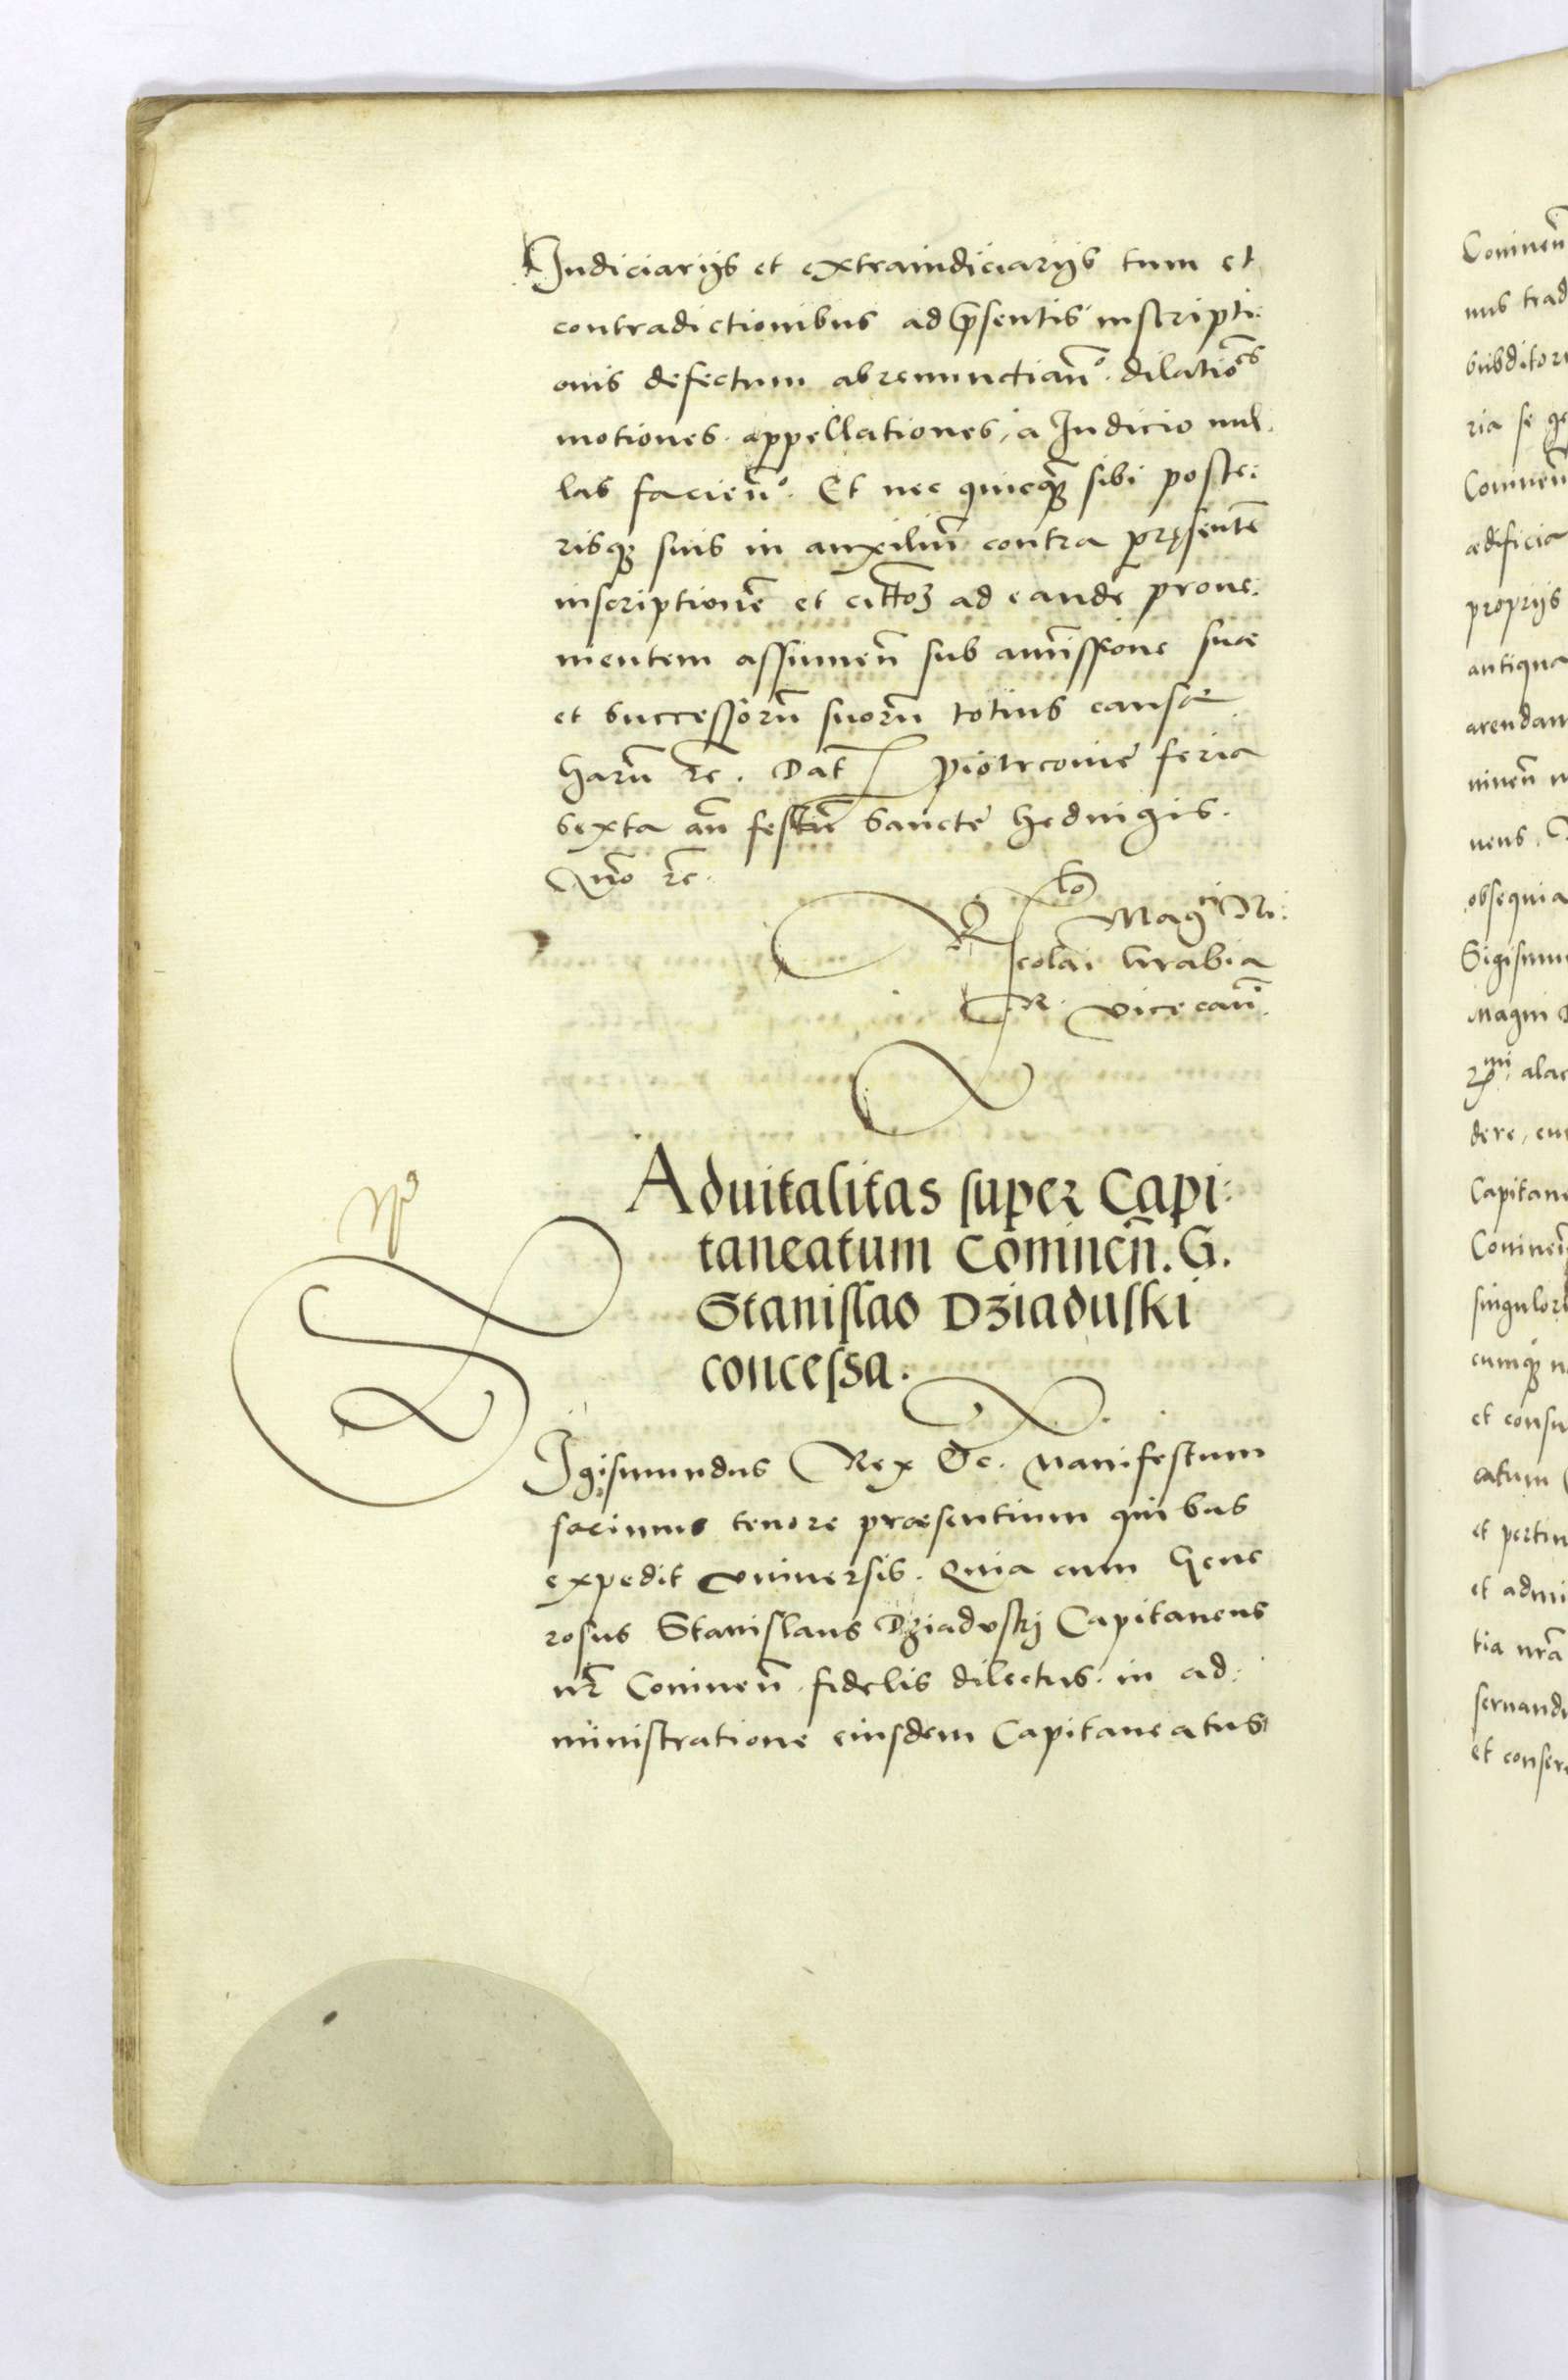 Judiciarijs et extraiudiciarijs tum et
contradictionibus ad p̃sentis inscripti:
onis defectum abrenunctiañ. dilatiões
motiones. appellationes, a Judicio nul:
las facieñ. Et nec quicq̃ sibi poste:
risq; suis in auxiliũ contra pręsentẽ
inscriptionẽ et cittoȝ ad eandẽ proue:
nientem assumeñ sub amissione suæ
et successorũ suorũ totius causæ
harũ rc̃. Dat̃ Piotrcoviæ feria
sexta añ festũ Sanctę Hedvigis.
Anño rc̃.
Rlo Magci Ni:
colai Grabia
R. vicecañ.
Advitalitas super Capi:
taneatum Coninceñ. G.
Stanislao Dziaduski
concessa.
Sigismundus Rex &c. Manifestum
facimus tenore præsentium quibus
expedit vniuersis. Quia cum Gene
rosus Stanislaus Dziadvskj Capitaneus
nr̃ Conineñ. fidelis dilectus. in ad:
ministratione eiusdem Capitaneatus
Conineñ
nus trad
subditoru
ria se ge
Conineñ
ædificia
proprijs
antiqua
arendam
nineñ
uens.
obsequia
Sigismun
Magni
alac
dere, cu
Capitane
Conineñ
singulor
cumq;
et consu
catum
et pertin
et admi
tia nrã
seruand
et conser